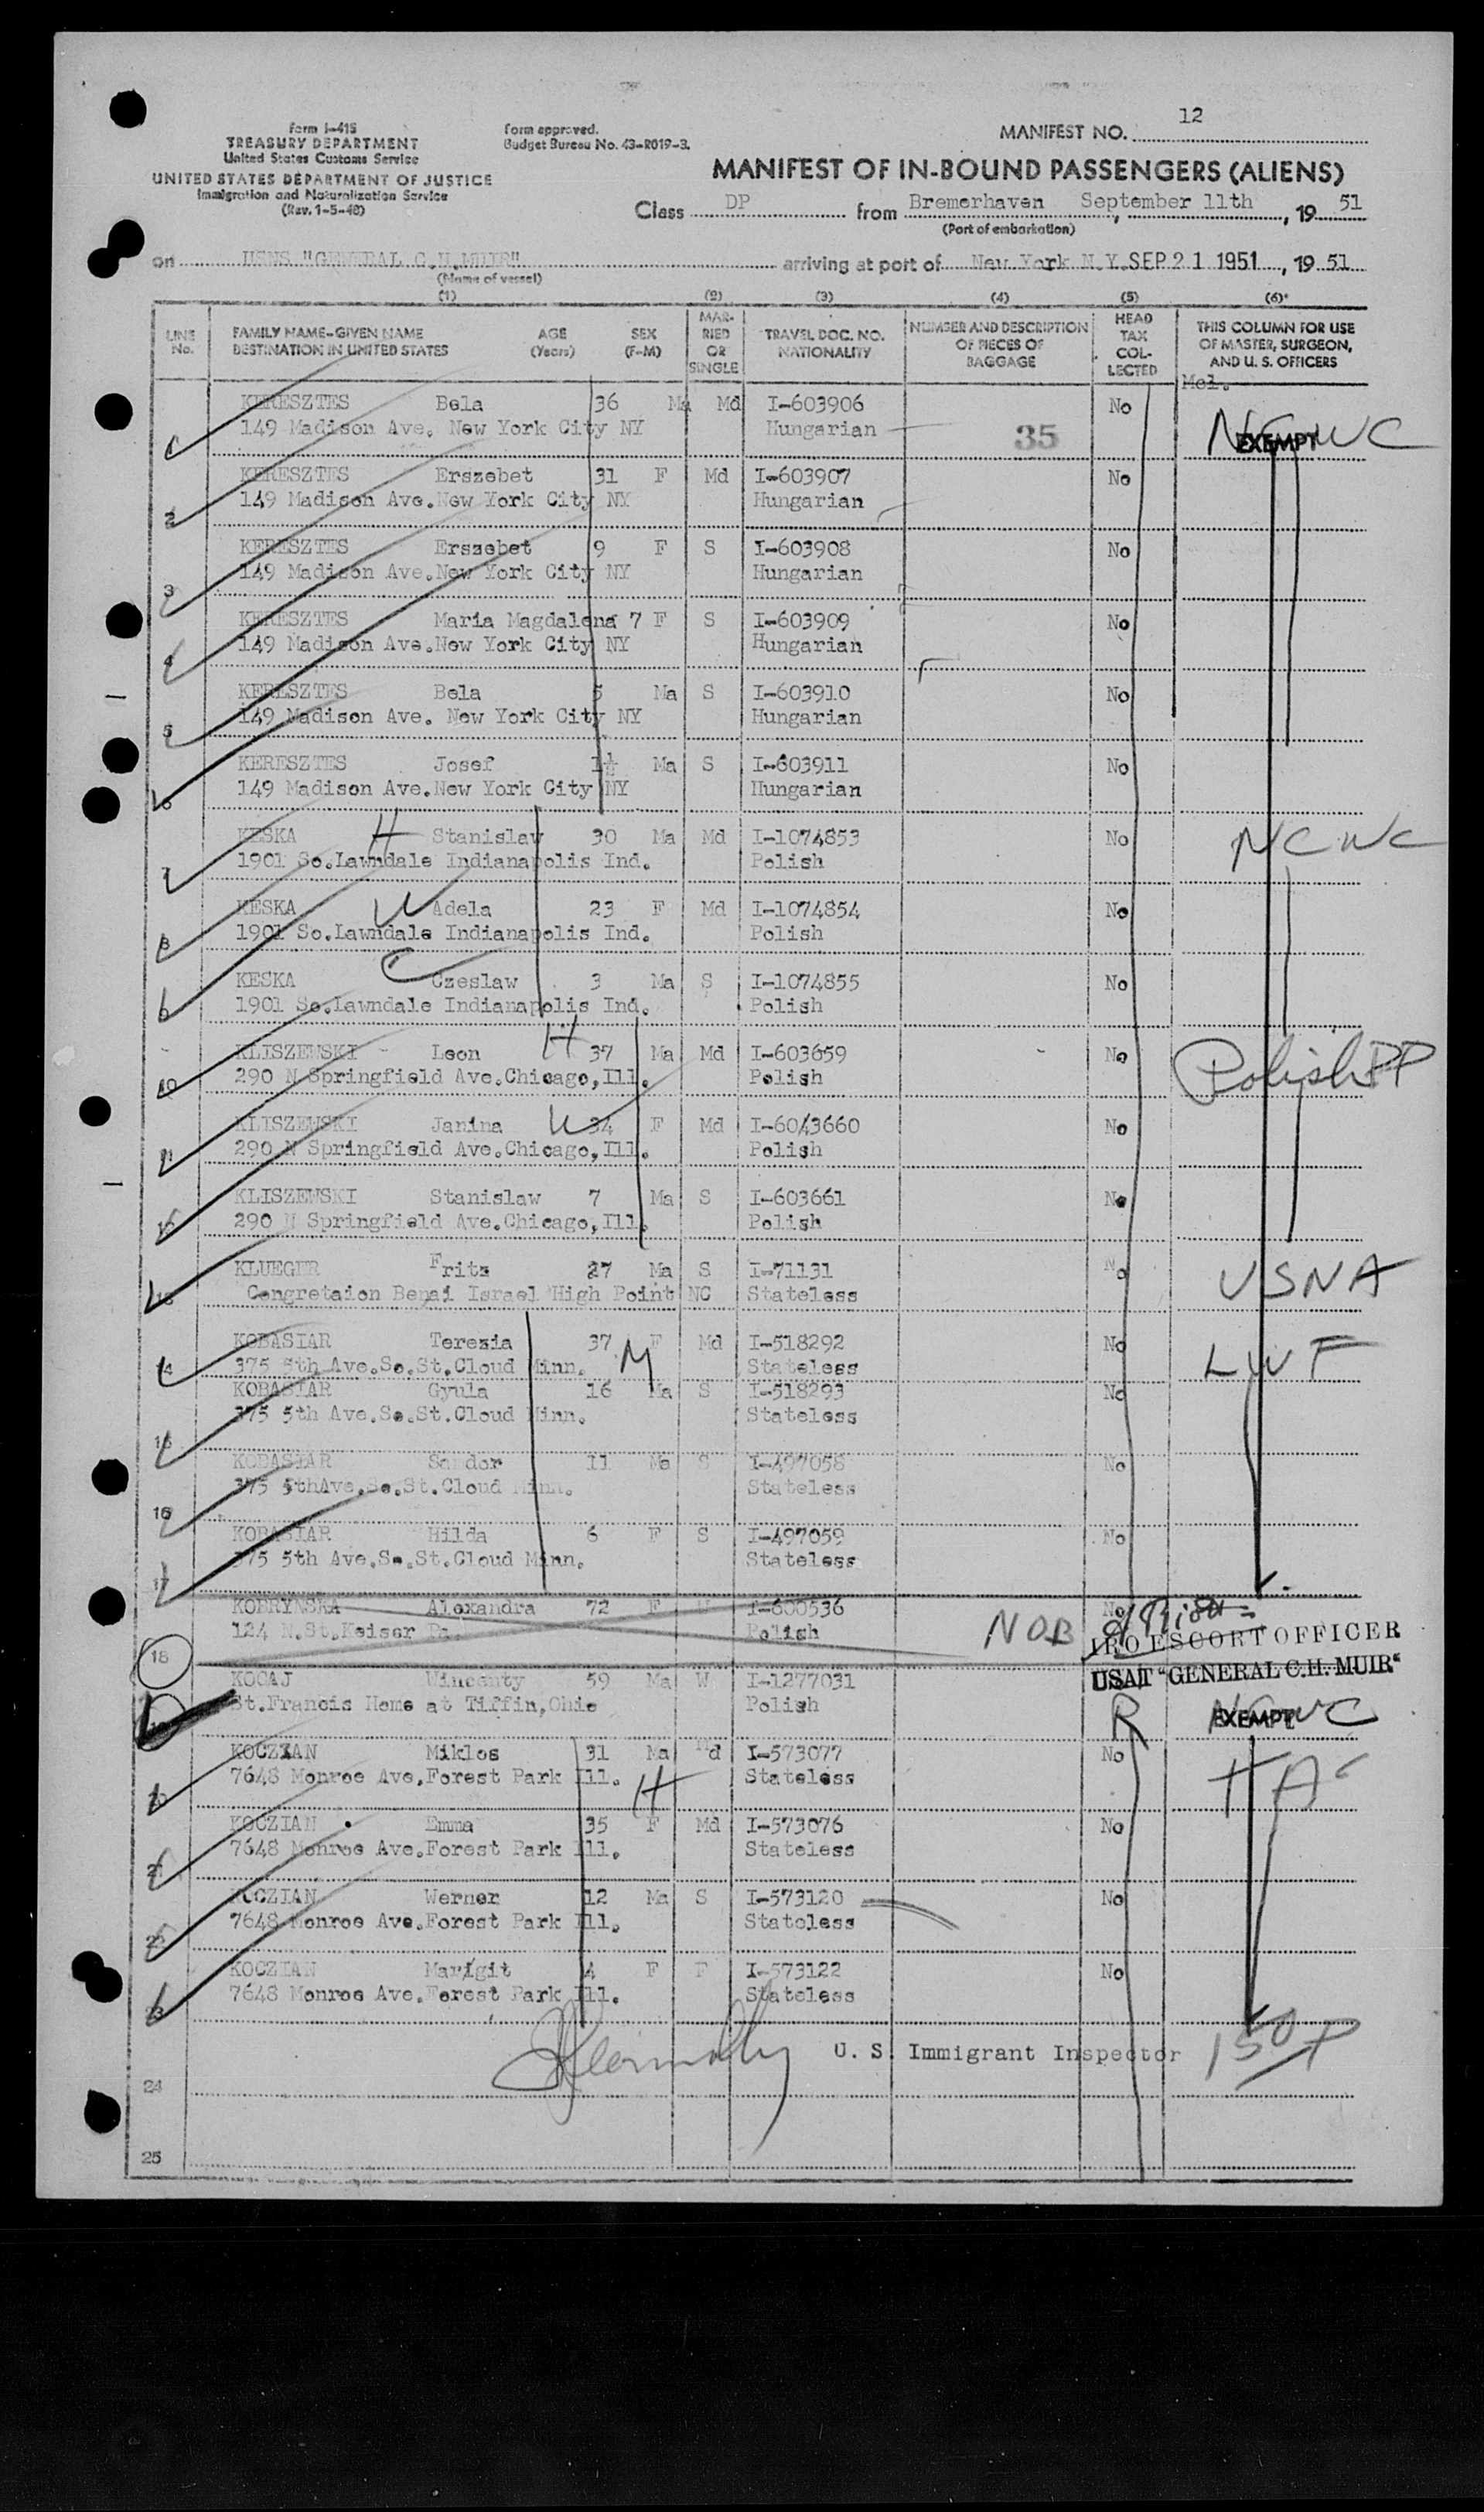 Form I-415
TREASURY DEPARTMENT
United States Customs Service
UNITED STATES DEPARTMENT OF JUSTICE
Immigration and Naturalization Service
(Rev. 1-5-48)
Form approved.
Budget Bureau No. 43-R019-3.
MANIFEST NO. 12
MANIFEST OF IN-BOUND PASSENGERS (ALIENS)
Class DP from Bremerhaven, September 11th, 19 51
(Port of embarkation)
on USNS "GENERAL C.H.MUIR" arriving at port of New York N.Y. SEP 21 1951, 19 51
(Name of vessel)
(1) (2) (3) (4) (5) (6)*
LINE No. FAMILY NAME-GIVEN NAME DESTINATION IN UNITED STATES AGE (Years) SEX (F-M) MARRIED OR SINGLE TRAVEL DOC. NO. NATIONALITY NUMBER AND DESCRIPTION OF PIECES OF BAGGAGE HEAD TAX COLLECTED THIS COLUMN FOR USE OF MASTER, SURGEON, AND U. S. OFFICERS
1 KERESZTES Bela 36 Ma Md I-603906 No NCWC
149 Madison Ave. New York City NY Hungarian 35 EXEMPT
2 KERESZTES Erszebet 31 F Md I-603907 No
149 Madison Ave.New York City NY Hungarian
3 KERESZTES Erszebet 9 F S I-603908 No
149 Madison Ave.New York City NY Hungarian
4 KERESZTES Maria Magdalena 7 F S I-603909 No
149 Madison Ave.New York City NY Hungarian
5 KERESZTES Bela 5 Ma S I-603910 No
149 Madison Ave. New York City NY Hungarian
6 KERESZTES Josef 1½ Ma S I-603911 No
149 Madison Ave.New York City NY Hungarian
7 KESKA H Stanislaw 30 Ma Md I-1074853 No NCWC
1901 So.Lawndale Indianapolis Ind. Polish
8 KESKA W Adela 23 F Md I-1074854 No
1901 So.Lawndale Indianapolis Ind. Polish
9 KESKA C Czeslaw 3 Ma S I-1074855 No
1901 So.Lawndale Indianapolis Ind. Polish
10 KLISZEWSKI Leon H 37 Ma Md I-603659 No Polish PP
290 N Springfield Ave.Chicago,Ill. Polish
11 KLISZEWSKI Janina W 34 F Md I-60/3660 No
290 N Springfield Ave.Chicago,Ill. Polish
12 KLISZEWSKI Stanislaw 7 Ma S I-603661 No
290 N Springfield Ave.Chicago,Ill. Polish
13 KLUEGER Fritz 27 Ma S I-71131 No USNA
Congretaion Benai Israel High Point NC Stateless
14 KOBASIAR Terezia 37 F Md I-518292 No LWF
375 5th Ave.So.St.Cloud Minn. M Stateless
15 KOBASIAR Gyula 16 Ma S I-518293 No
375 5th Ave.So.St.Cloud Minn. Stateless
16 KOBASIAR Sandor 11 Ma S I-497058 No
375 5thAve.So.St.Cloud Minn. Stateless
17 KOBASIAR Hilda 6 F S I-497059 No
375 5th Ave.So.St.Cloud Minn. Stateless
18 KOBRYNSKA Alexandra 72 F I-600536 No
124 N.St.Keiser Pa. Polish NOB
IRO ESCORT OFFICER
USAT "GENERAL C.H. MUIR"
19 KOCAJ Wincenty 59 Ma W I-1277031
St.Francis Home at Tiffin,Ohio Polish R NCWC EXEMPT
20 KOCZIAN Miklos 31 Ma Md I-573077 No
7648 Monroe Ave.Forest Park Ill. H Stateless
21 KOCZIAN Emma 35 F Md I-573076 No
7648 Monroe Ave.Forest Park Ill. Stateless
22 KOCZIAN Werner 12 Ma S I-573120 No
7648 Monroe Ave.Forest Park Ill. Stateless
23 KOCZIAN Marigit 4 F F I-573122 No
7648 Monroe Ave.Forest Park Ill. Stateless
U. S. Immigrant Inspector
24
25